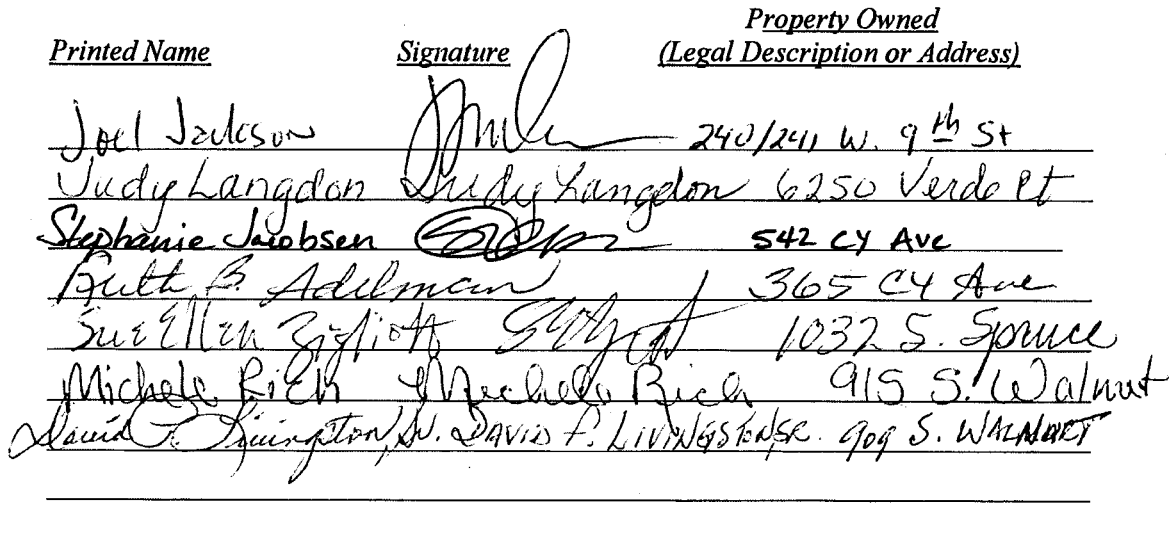 Property Owned
Printed Name Signature (Legal Description or Address)
Joel Jackson 240/241 W. 9th St
Judy Langdon Judy Langdon 6250 Verde Pt
Stephanie Jacobsen 542 CY Ave
Ruth B. Adelman 365 CY Ave
Sue Ellen 1032 S. Spruce
Michele Rich Michele Rich 915 S. Walnut
David F. Livingston, Sr. DAVID F. LIVINGSTON SR. 909 S. WALNUT